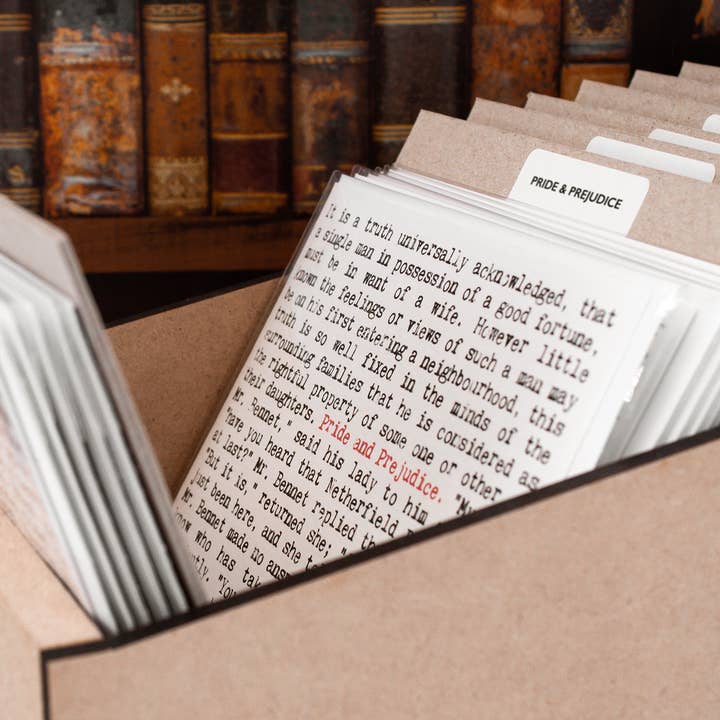 PRIDE & PREJUDICE
It is a truth universally acknowledged, that
a single man in possession of a good fortune,
must be in want of a wife. However little
known the feelings or views of such a man may
be on his first entering a neighbourhood, this
truth is so well fixed in the minds of the
surrounding families that he is considered as
the rightful property of some one or other
their daughters. Pride and Prejudice. "My
Mr. Bennet," said his lady to him
"have you heard that Netherfield
at last?" Mr. Bennet replied
"But it is," returned she; "
just been here, and she
Mr. Bennet made no
who has
"You